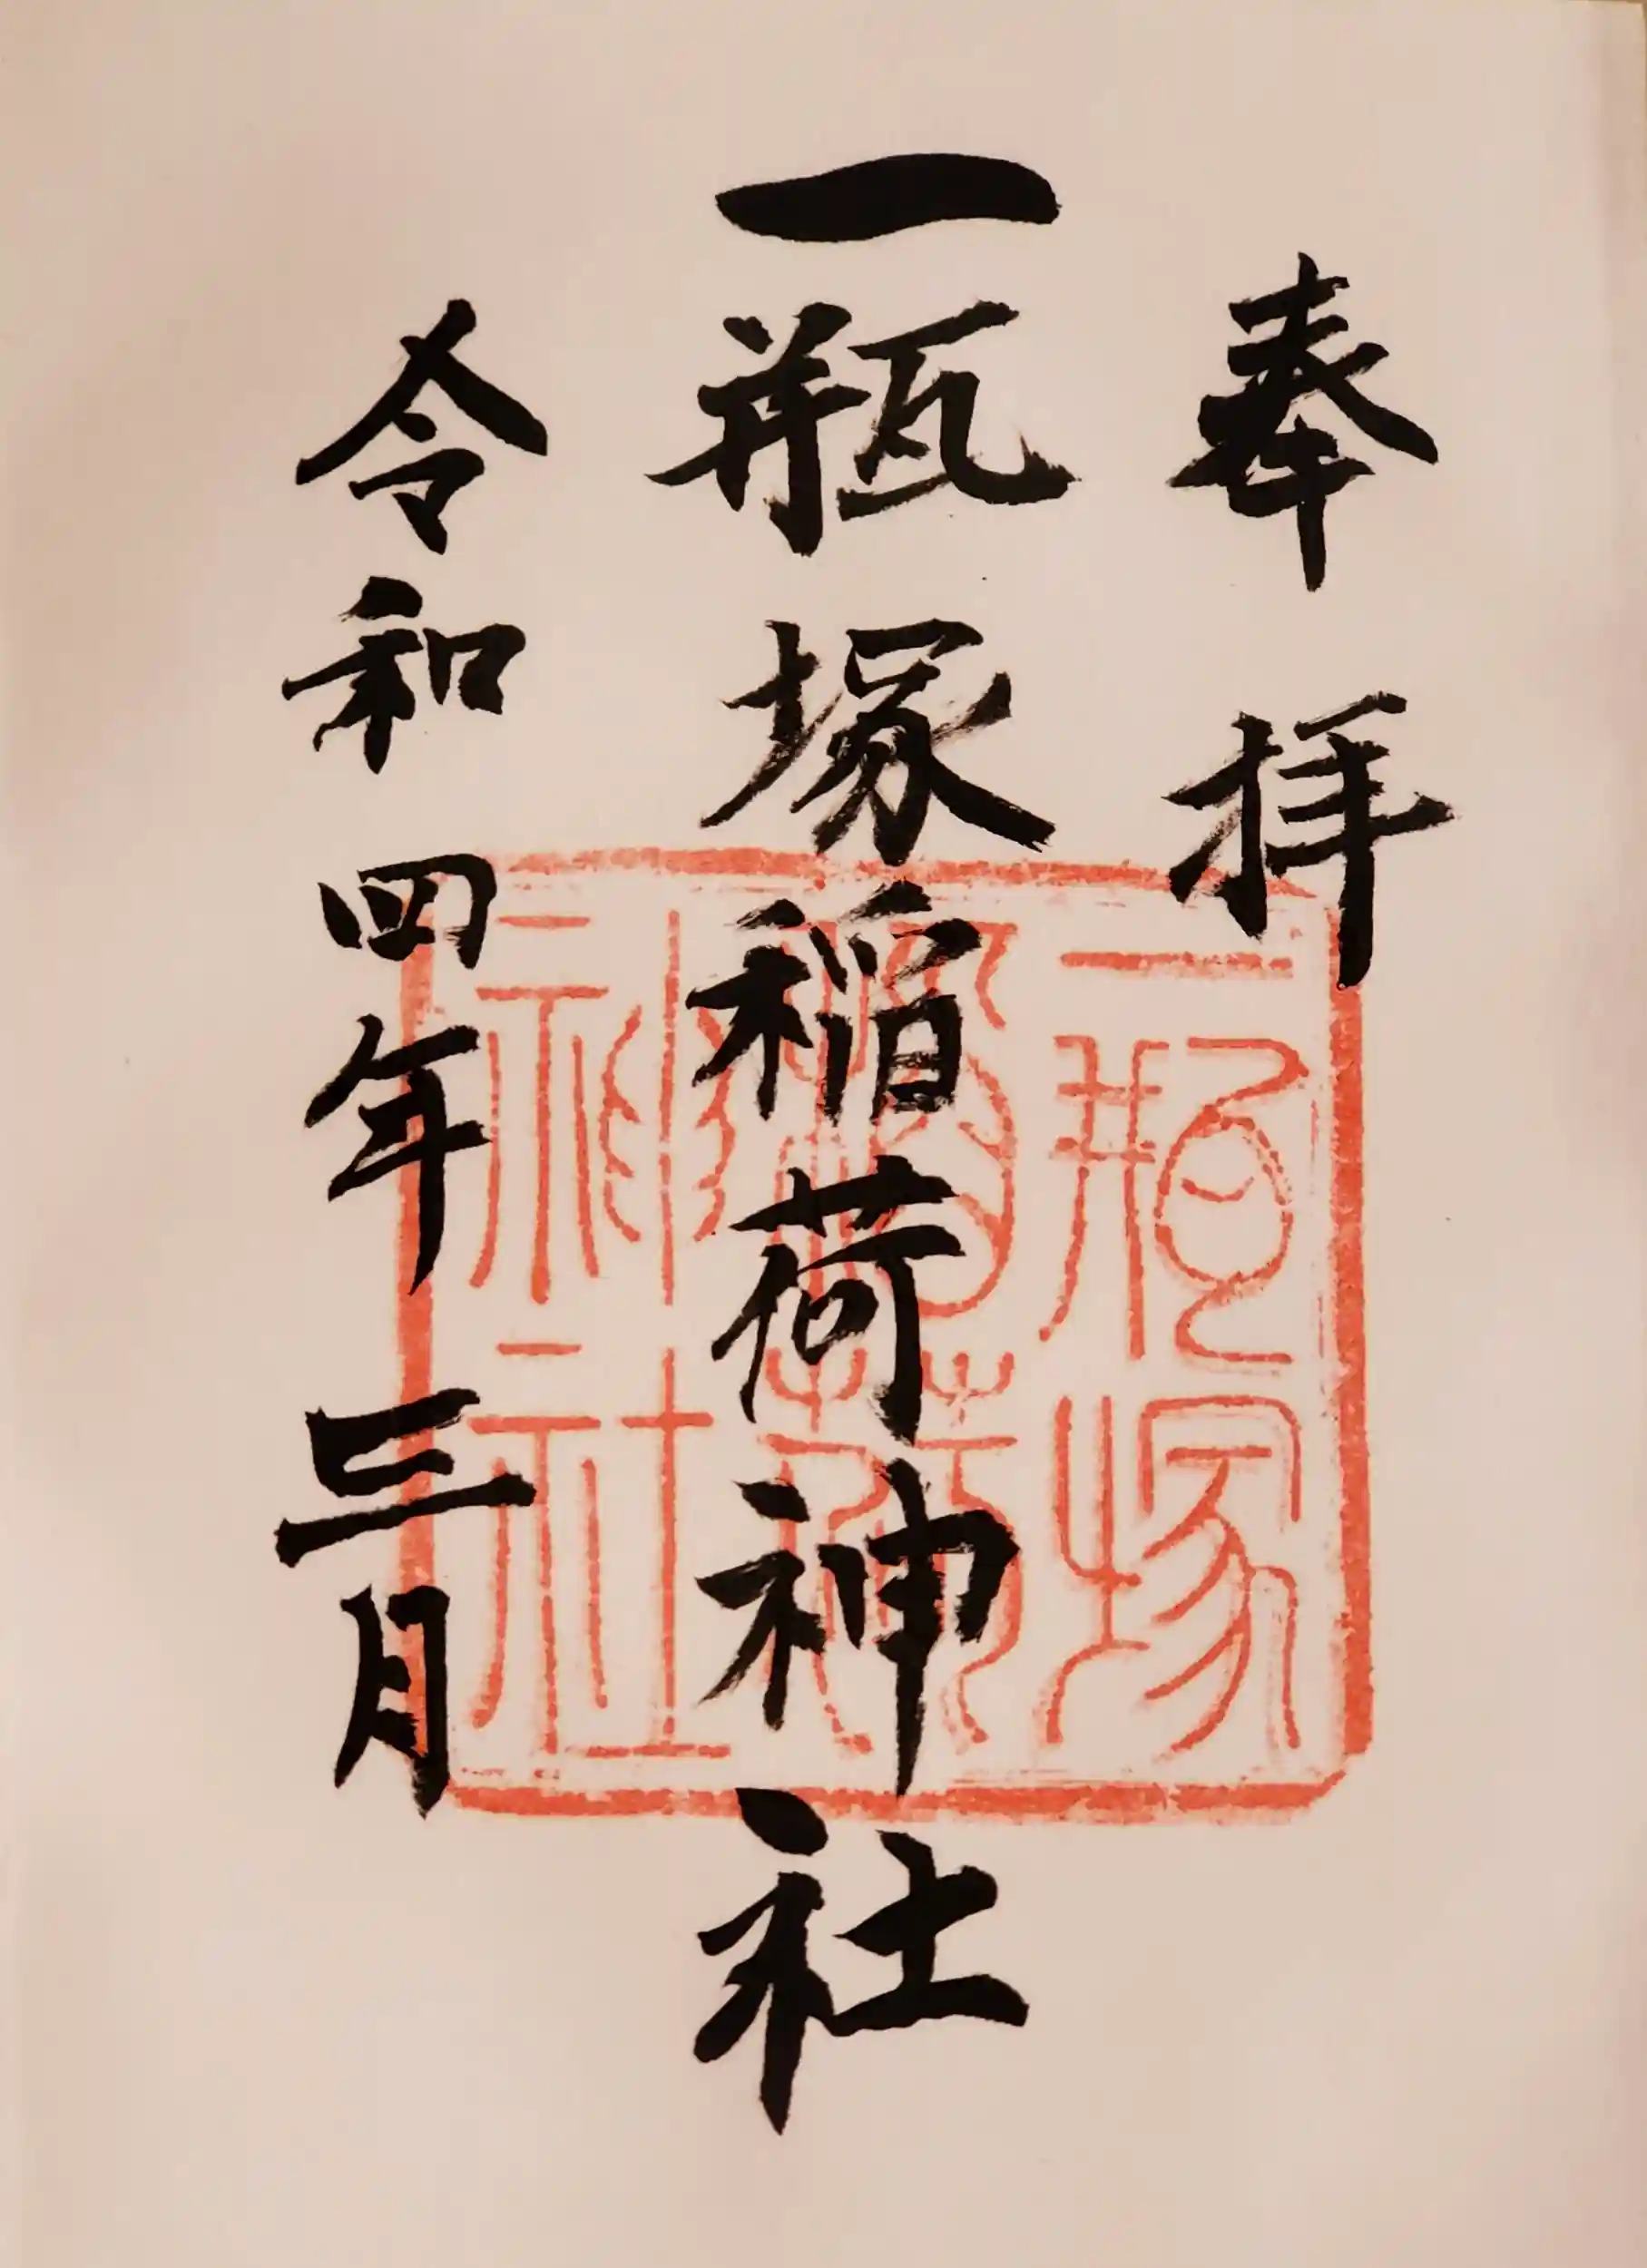 奉拝
一瓶塚稲荷神社
一瓶塚稲荷神社
令和四年三月